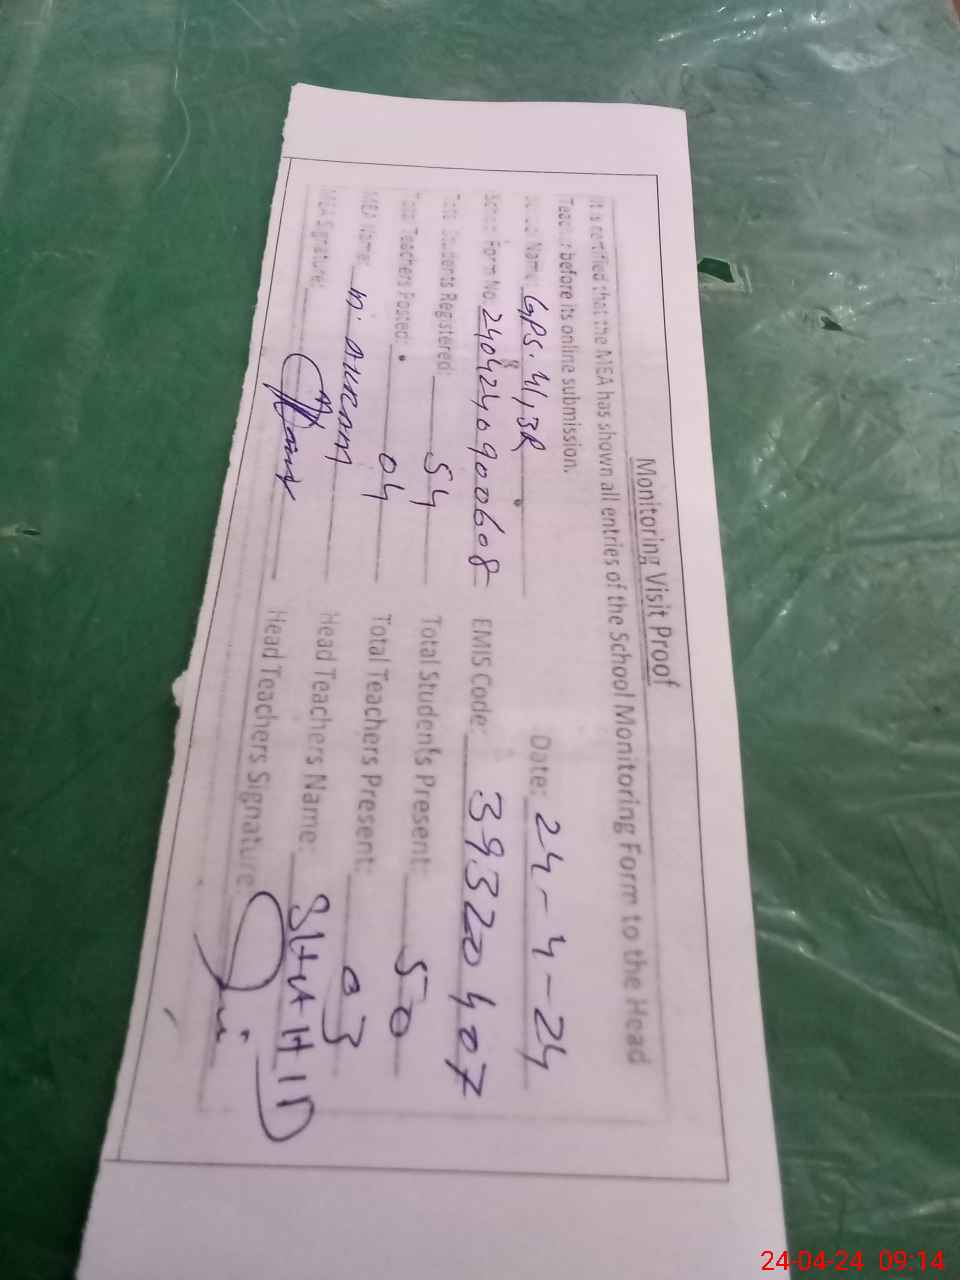 Monitoring Visit Proof
It is certified that the MEA has shown all entries of the School Monitoring Form to the Head
Teacher before its online submission.
School Name: GPS. 41/3R Date: 24-4-24
School Form No. 2404240900608 EMIS Code: 39320407
Total Students Registered: 54 Total Students Present: 50
Total Teachers Posted: 04 Total Teachers Present: 03
MEA Name: M. AKRAM Head Teachers Name:
MEA Signature: Head Teachers Signature:
24-04-24 09:14